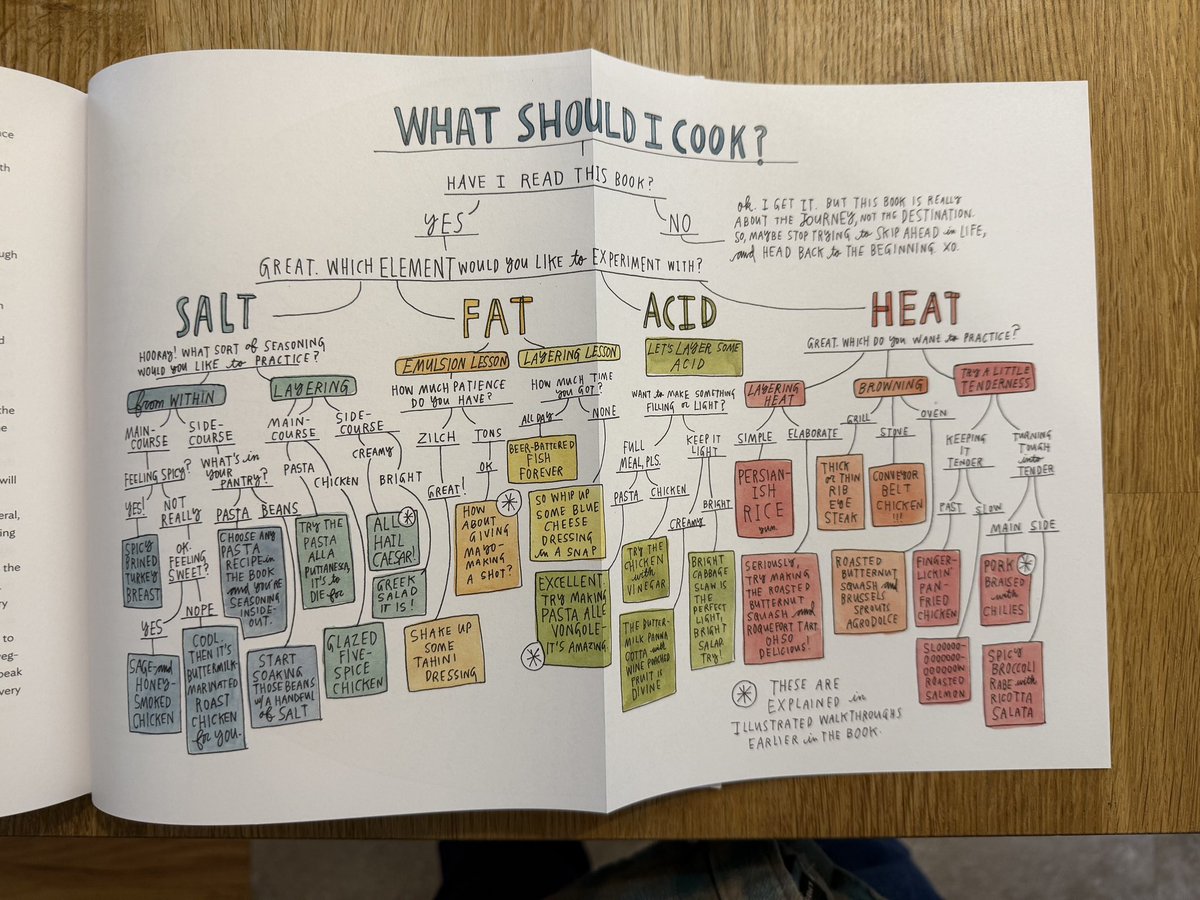 nce
th
ough
n
d
the
e
will
eral,
ting
the
ry
to
veg-
peak
very
WHAT SHOULD I COOK?
HAVE I READ THIS BOOK?
YES
NO
OK. I GET IT. BUT THIS BOOK IS REALLY
ABOUT THE JOURNEY, NOT THE DESTINATION.
SO, MAYBE STOP TRYING to SKIP AHEAD in LIFE,
and HEAD BACK TO THE BEGINNING. XO.
GREAT. WHICH ELEMENT WOULD YOU LIKE to EXPERIMENT WITH?
SALT
HOORAY! WHAT SORT of SEASONING
WOULD YOU LIKE to PRACTICE?
from WITHIN
MAIN-
COURSE
FEELING SPICY?
YES!
SPICY
BRINED
TURKEY
BREAST
NOT
REALLY
OK.
FEELING
SWEET?
YES
SAGE-and
HONEY-
SMOKED
CHICKEN
NOPE
COOL.
THEN IT'S
BUTTERMILK-
MARINATED
ROAST
CHICKEN
for YOU-
SIDE-
COURSE
WHAT'S in
YOUR
PANTRY?
PASTA
CHOOSE ANY
PASTA
RECIPE in
THE BOOK
and YOU'RE
SEASONING
INSIDE-
OUT.
BEANS
START
SOAKING
THOSE BEANS
w/ A HANDFUL
of SALT
LAYERING
MAIN-
COURSE
PASTA
TRY THE
PASTA
ALLA
PUTTANESCA,
IT'S to
DIE for
CHICKEN
GLAZED
FIVE-
SPICE
CHICKEN
SIDE-
COURSE
CREAMY
ALL
HAIL
CAESAR!
BRIGHT
GREEK
SALAD
IT IS!
FAT
EMULSION LESSON
HOW MUCH PATIENCE
DO YOU HAVE?
ZILCH
GREAT!
SHAKE UP
SOME
TAHINI
DRESSING
TONS
OK
HOW
ABOUT
GIVING
MAYO-
MAKING
A SHOT?
LAYERING LESSON
HOW MUCH TIME
YOU GOT?
ALL DAY
BEER-BATTERED
FISH
FOREVER
NONE
SO WHIP UP
SOME BLUE
CHEESE
DRESSING
in A SNAP
EXCELLENT,
TRY MAKING
PASTA ALLE
VONGOLE-
IT'S AMAZING
ACID
LET'S LAYER SOME
ACID
WANT to MAKE SOMETHING
FILLING or LIGHT?
FULL
MEAL, PLS.
PASTA
CHICKEN
TRY THE
CHICKEN
with
VINEGAR
KEEP IT
LIGHT
CREAMY
THE BUTTER-
MILK PANNA
COTTA with
WINE POACHED
FRUIT IS
DIVINE
BRIGHT
BRIGHT
CABBAGE
SLAW IS
THE
PERFECT
LIGHT,
BRIGHT
SALAD.
TRY!
HEAT
GREAT. WHICH DO YOU WANT to PRACTICE?
LAYERING
HEAT
SIMPLE
PERSIAN-
ISH
RICE
yum
ELABORATE
SERIOUSLY,
TRY MAKING
THE ROASTED
BUTTERNUT
SQUASH and
ROQUEFORT TART.
OH SO
DELICIOUS!
BROWNING
GRILL
THICK
or THIN
RIB
EYE
STEAK
STOVE
CONVEYOR
BELT
CHICKEN
!!!
OVEN
ROASTED
BUTTERNUT
SQUASH and
BRUSSELS
SPROUTS
AGRODOLCE
TRY A LITTLE
TENDERNESS
KEEPING
IT
TENDER
FAST
FINGER-
LICKIN'
PAN-
FRIED
CHICKEN
SLOW
SLOOOOO-
OOOOOOO-
OOOOOOW
ROASTED
SALMON
TURNING
TOUGH
into
TENDER
MAIN
PORK
BRAISED
with
CHILIES
SIDE
SPICY
BROCCOLI
RABE with
RICOTTA
SALATA
THESE ARE
EXPLAINED in
ILLUSTRATED WALKTHROUGHS
EARLIER in THE BOOK.